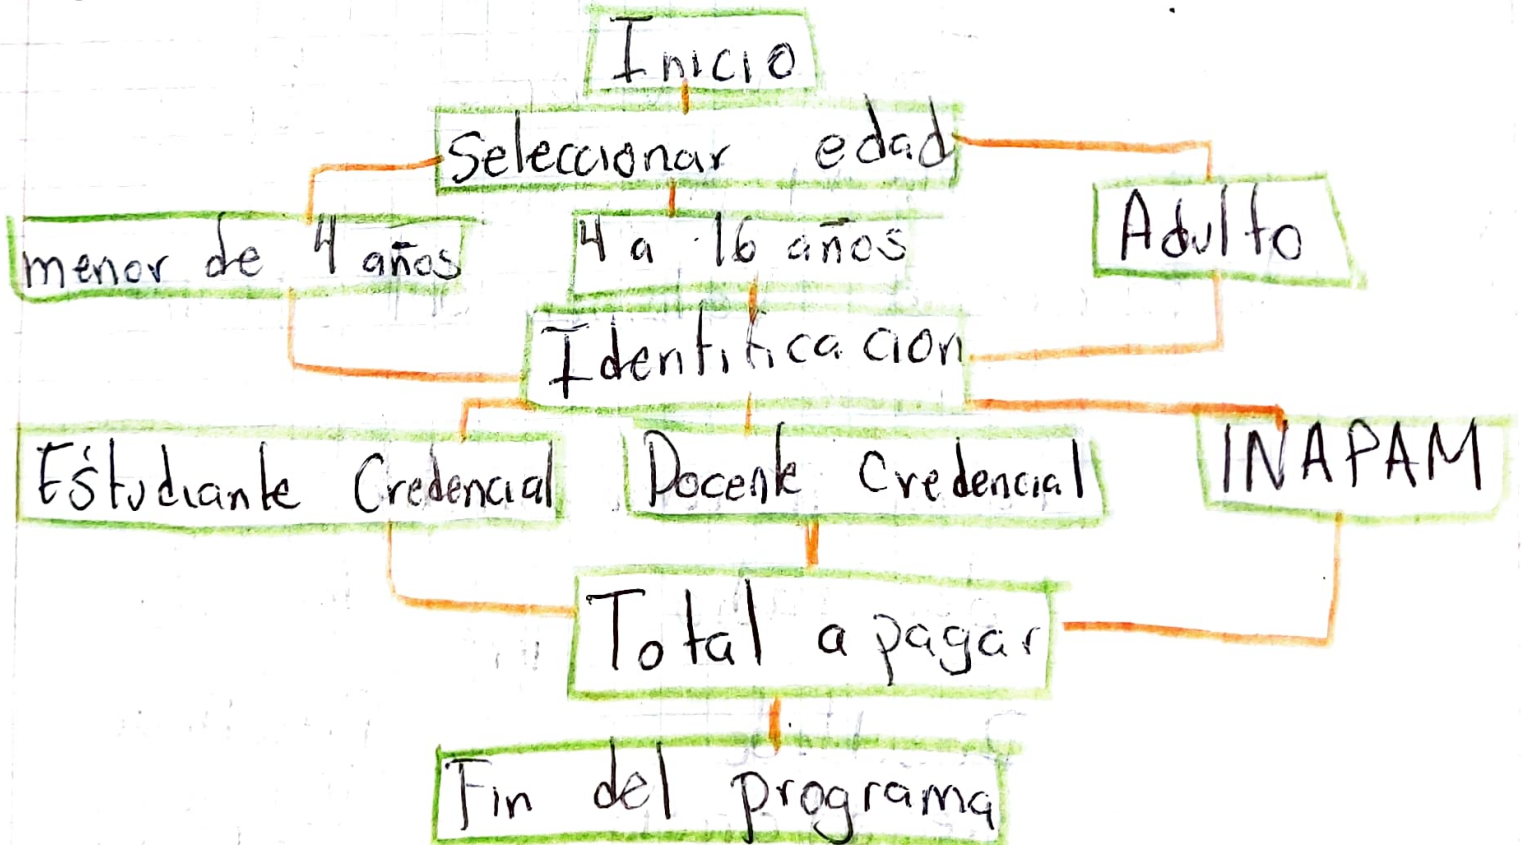 Inicio
Seleccionar edad
menor de 4 años
4 a 16 años
Adulto
Identificacion
Estudiante Credencial
Docente Credencial
INAPAM
Total a pagar
Fin del programa